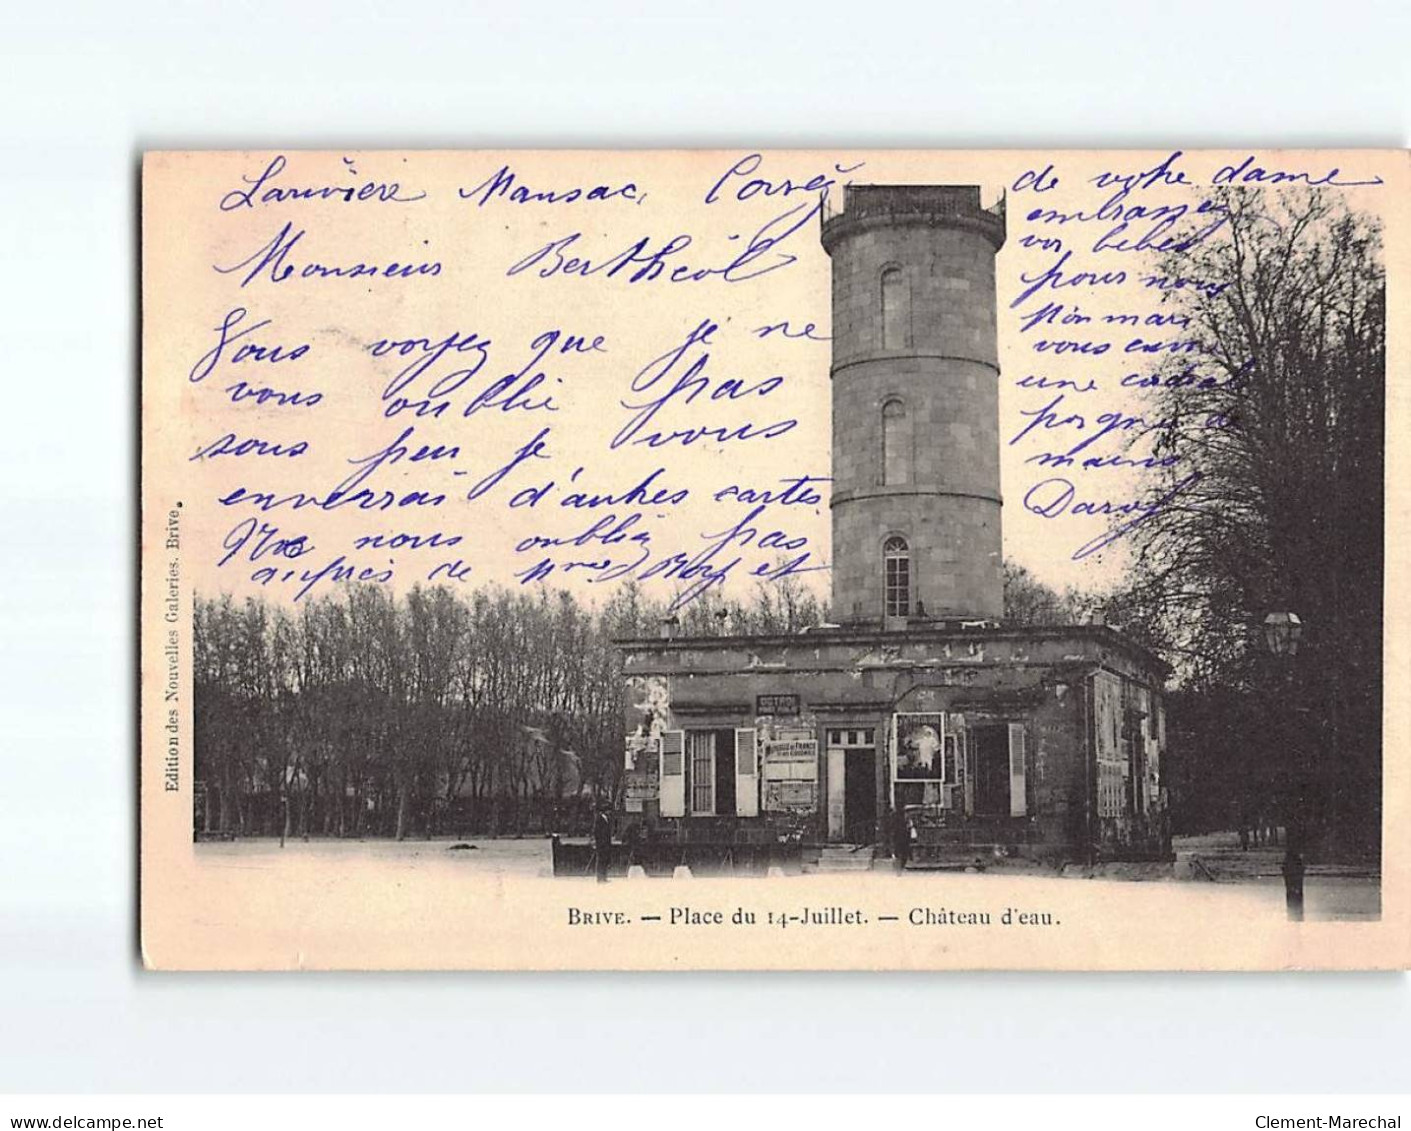 Larivière Mansac, Corrèze
Monsieur Bertheol
Vous voyez que je ne
vous oublie pas
sous peu je vous
enverrai d'autres cartes.
Ne nous oubliez pas
auprès de Mme et
de votre dame
embrassez
vos bébés
pour nous
Mon mari
vous
une cordial
poigné de
mains
Edition des Nouvelles Galeries. Brive.
BRIVE. — Place du 14-Juillet. — Château d'eau.
www.delcampe.net
Clement-Marechal